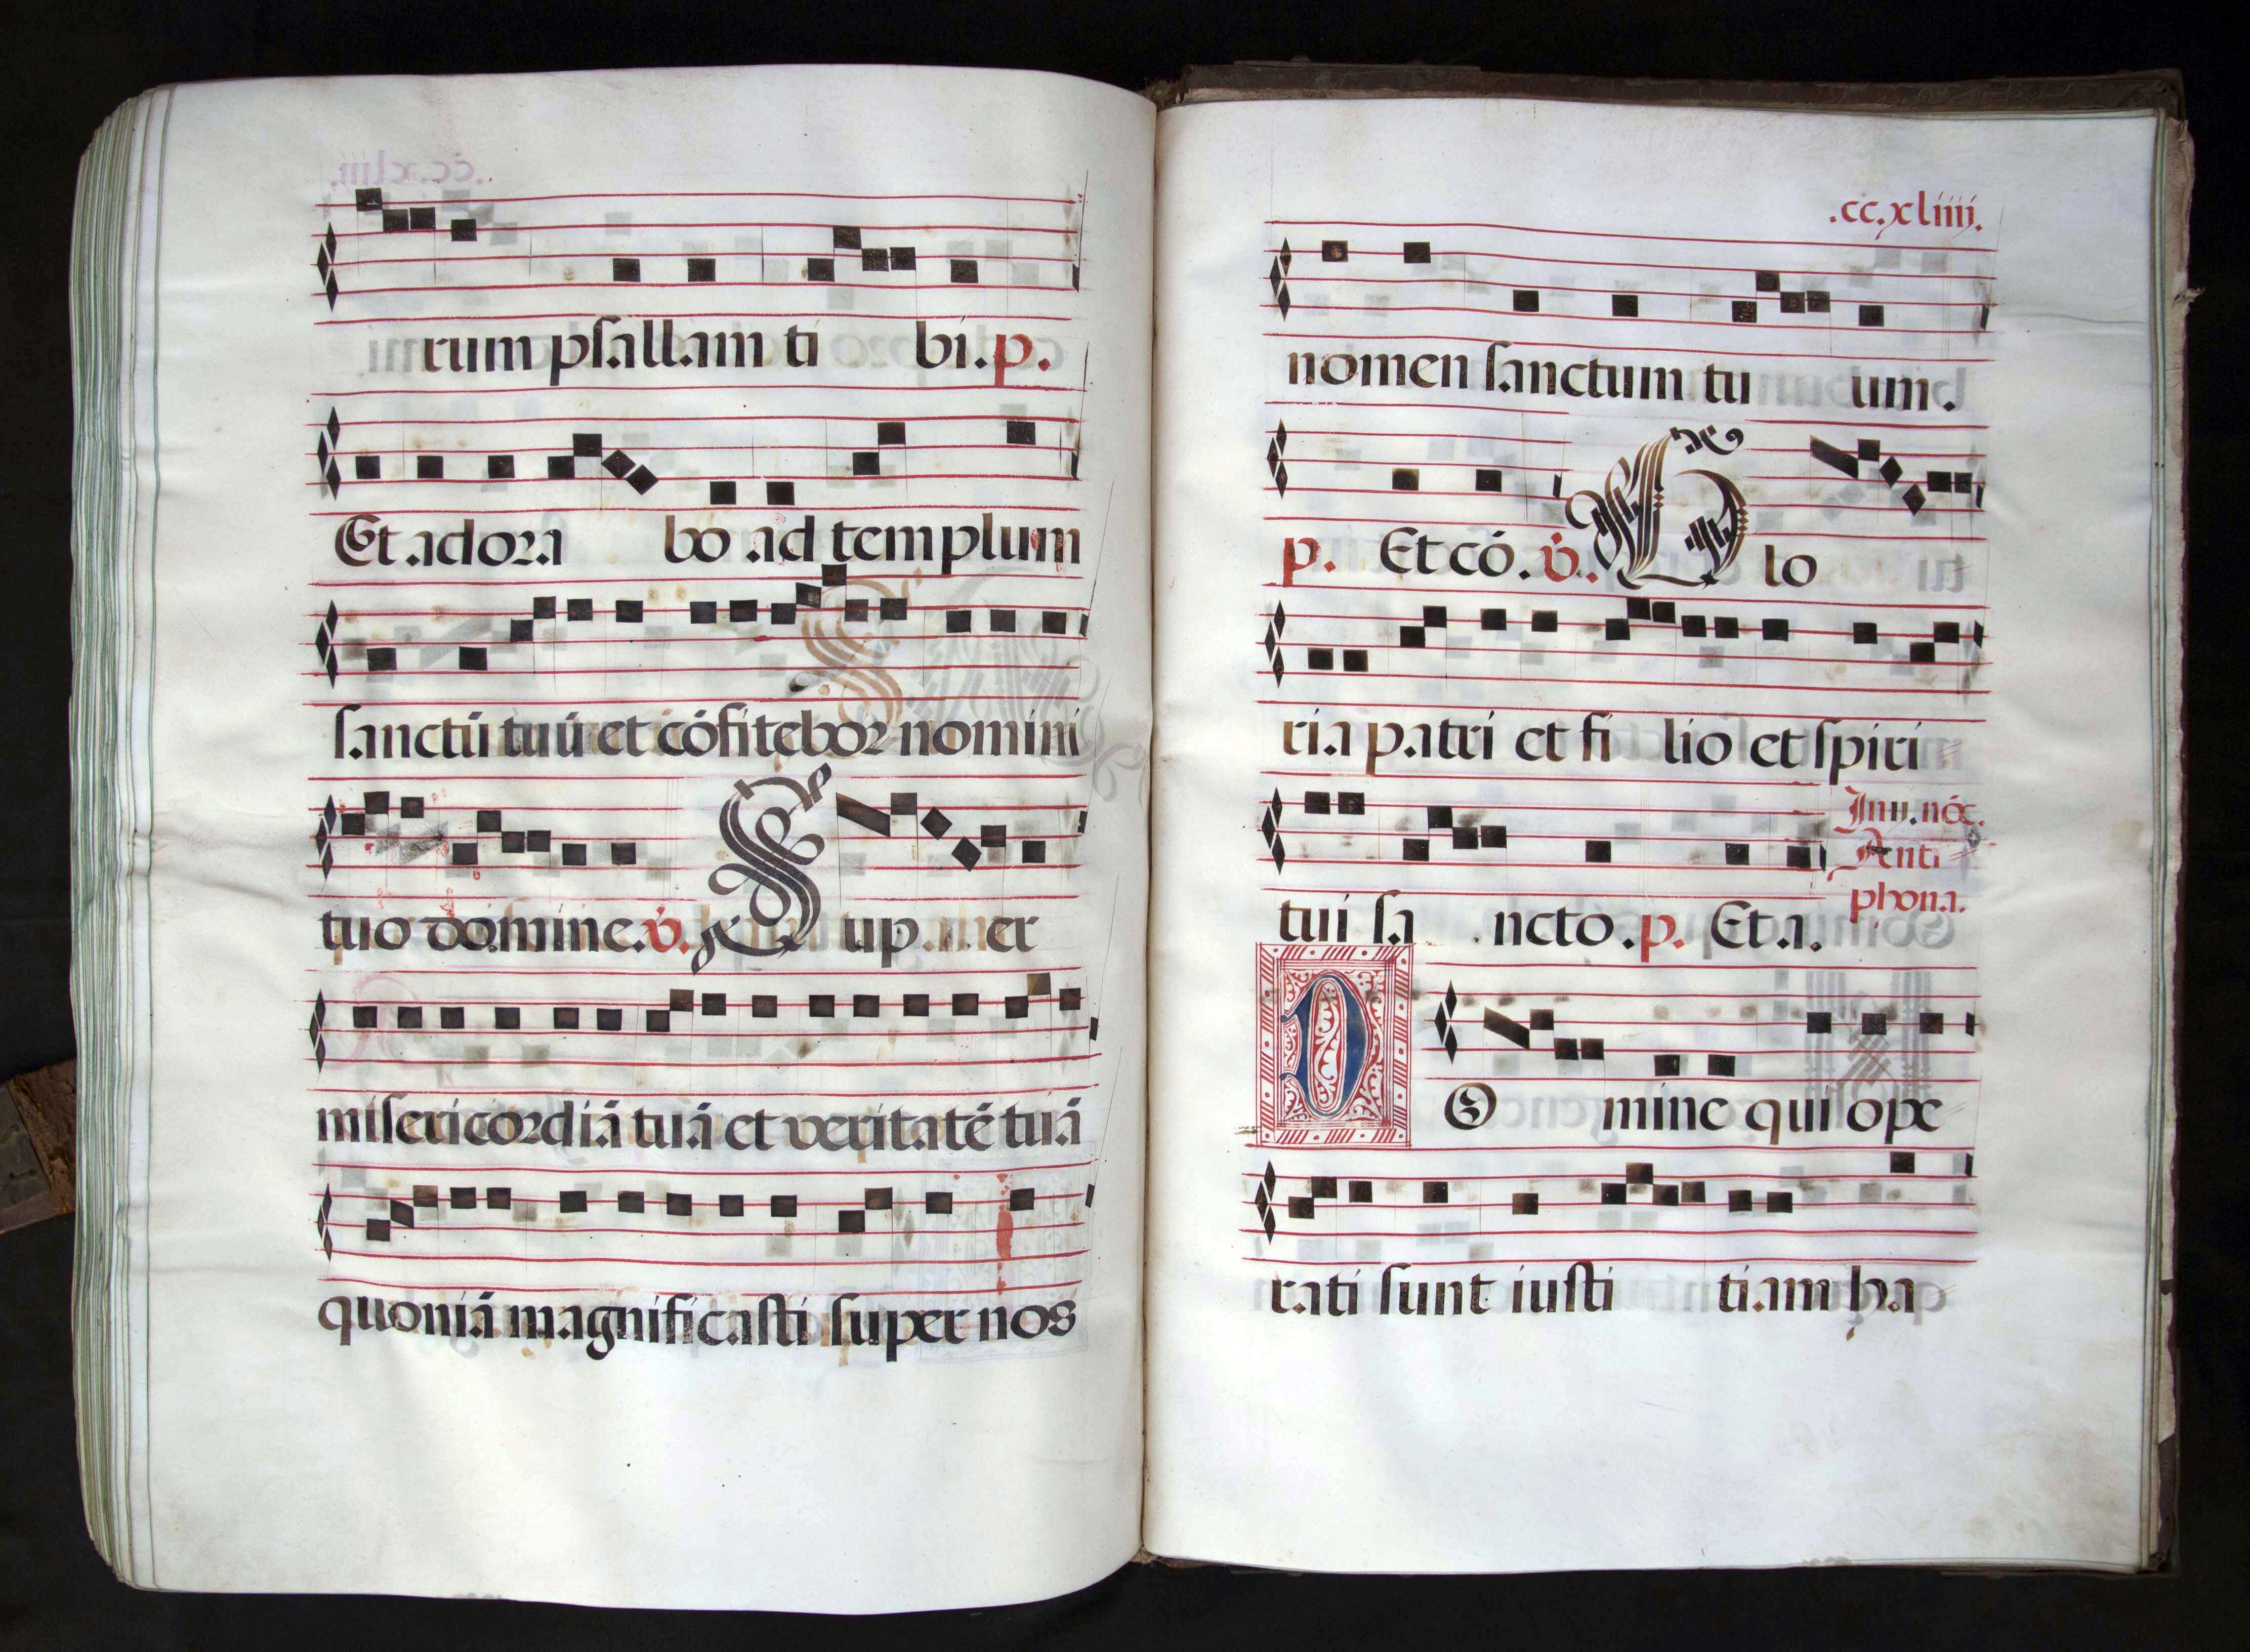 rum psallam ti bi. p.
Et adora bo ad templum
sanctū tuū et cōfitebor nomini
tuo domine. v̇. Sup er
misericordiā tuā et veritatē tuā
quoniā magnificasti super nos
.cc.xliiii.
nomen sanctum tu um.
p. Et cō. v̇. Glo
ria patri et fi lio et spiri
tui sa ncto. p. Et a.
In ii. nōc.
Anti
phona.
DO mine qui ope
rati sunt iusti tiam ha